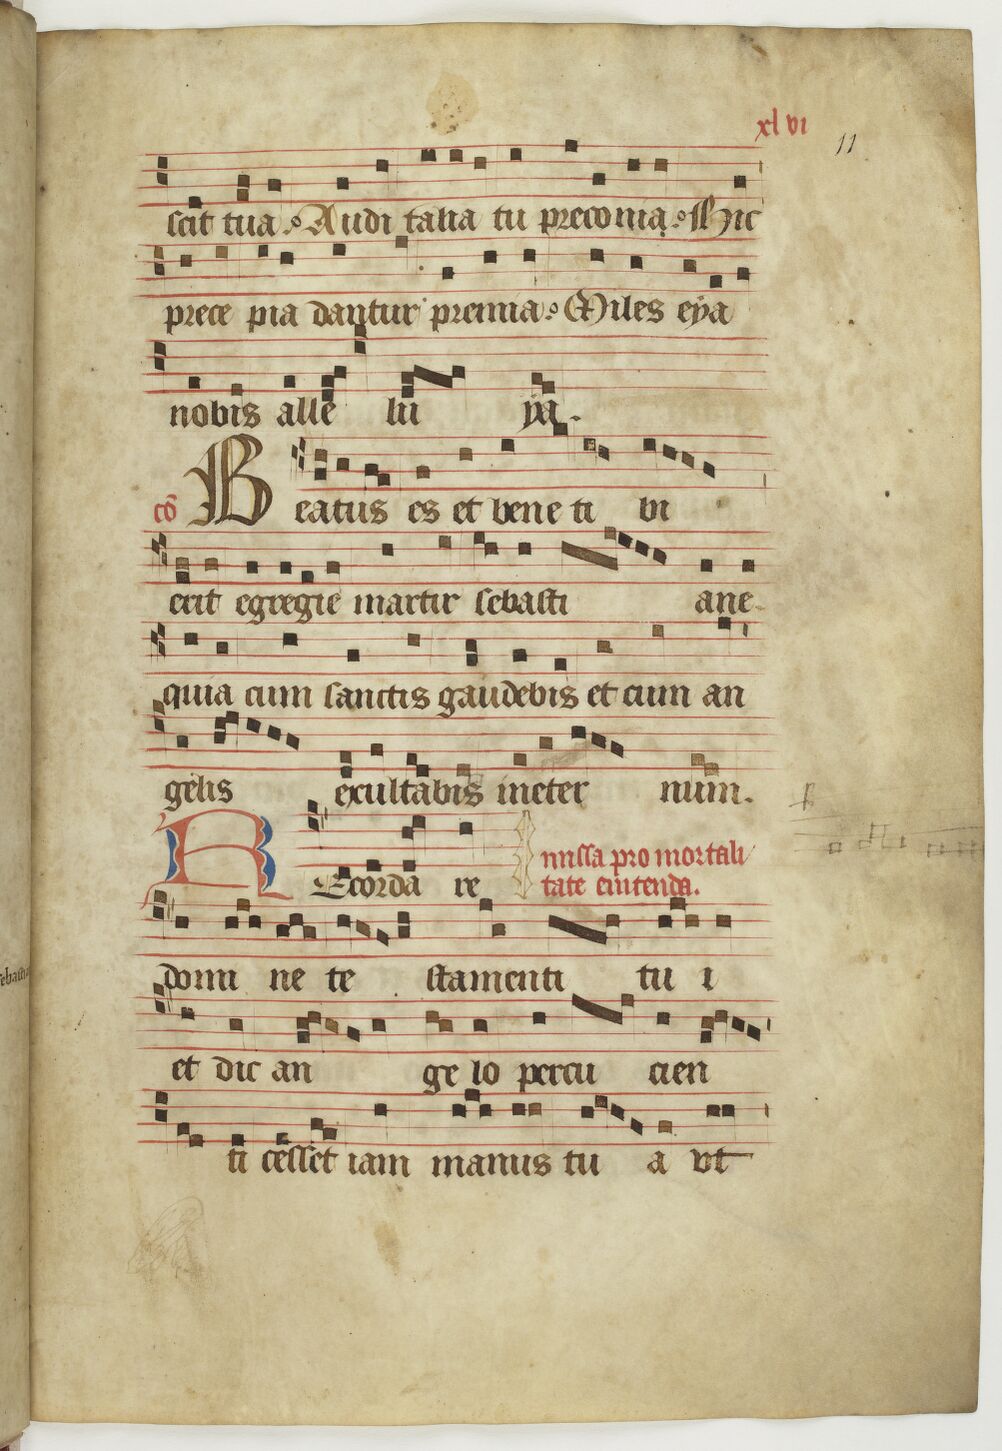 xlvi
11
scit tua. Audi talia tu preconia. Hic
prece pia dantur premia. Miles eya
nobis alle lu ya.
co Beatus es et bene ti bi
erit egregie martir sebasti ane.
quia cum sanctis gaudebis et cum an
gelis exultabis ineter num.
REcorda re missa pro mortali
tate evitenda.
domi ne te stamenti tu i
et dic an ge lo percu cien
ti cesset iam manus tu a ut